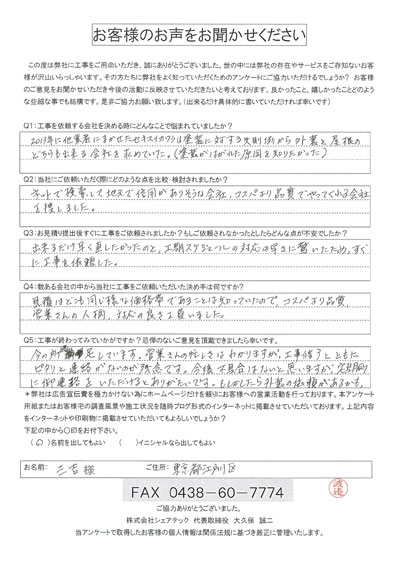 お客様のお声をお聞かせください
この度は弊社に工事をご用命いただき、誠にありがとうございました。世の中には弊社の存在やサービスをご存知ないお客
様が沢山いらっしゃいます。その方たちに弊社をよく知っていただくためのアンケートにご協力いただけるでしょうか？ お客様
のご意見をお聞かせいただき今後の活動に反映させていただきたいと考えております。良かったこと、嬉しかったことどのよう
な些細な事でも結構です。是非ご協力お願い致します。（出来るだけ具体的に書いていただければ幸いです）
Q1：工事を依頼する会社を決める時にどんなことで悩まれていましたか？
2013年に他業者にまかせた
塗装に対する失敗 から外装と屋根の
どちらも出来る会社を求めていた。（塗装がはがれた原因を知りたかった）
Q2：当社にご依頼いただく際にどのような点を比較・検討されましたか？
ネットで検索して地元で信用がありそうな会社、コスパより品質でやってくれる会社
を探しました。
Q3：お見積り提出後すぐに工事をご依頼されましたか？もしご依頼されなかったとしたらどんな点が不安でしたか？
出来るだけ早く直したかったのと、工期スケジュールの対応の早さに驚いたため、すぐ
に工事を依頼した。
Q4：数ある会社の中から当社に工事をご依頼いただいた決め手は何ですか？
見積はどこも同じ様な価格帯であることは知っていたので、コスパより品質、
営業さんの人柄、対応の良さを買いました。
Q5：工事が終わってみていかがですか？忌憚のないご意見を頂戴できましたら幸いです。
今の所満足しています。営業さんの忙しさはわかりますが、工事終了とともに
ピタリと連絡がないのが残念です。今後不具合はないと思いますが、定期的
に御連絡をいただけるとありがたいです。もしかしたら外装の依頼があるかも。
＊弊社は広告宣伝費を極力かけない為にホームページだけを頼りにお客様への営業活動を行っております。本アンケート
用紙またはお客様宅の調査風景や施工状況を随時ブログ形式のインターネットに掲載させていただいております。上記内容
をインターネットや印刷物に掲載させていただいてもよろしいでしょうか？
下記の中から〇印をお付け下さい。
（〇）名前を出してもよい （ ）イニシャルなら出してもよい
お名前： 三吉 様 ご住所： 東京都江戸川区
FAX 0438-60-7774
渡邉
ご協力ありがとうございました。
株式会社シェアテック 代表取締役 大久保 誠二
当アンケートで取得したお客様の個人情報は関係法規に基づき厳正に管理いたします。